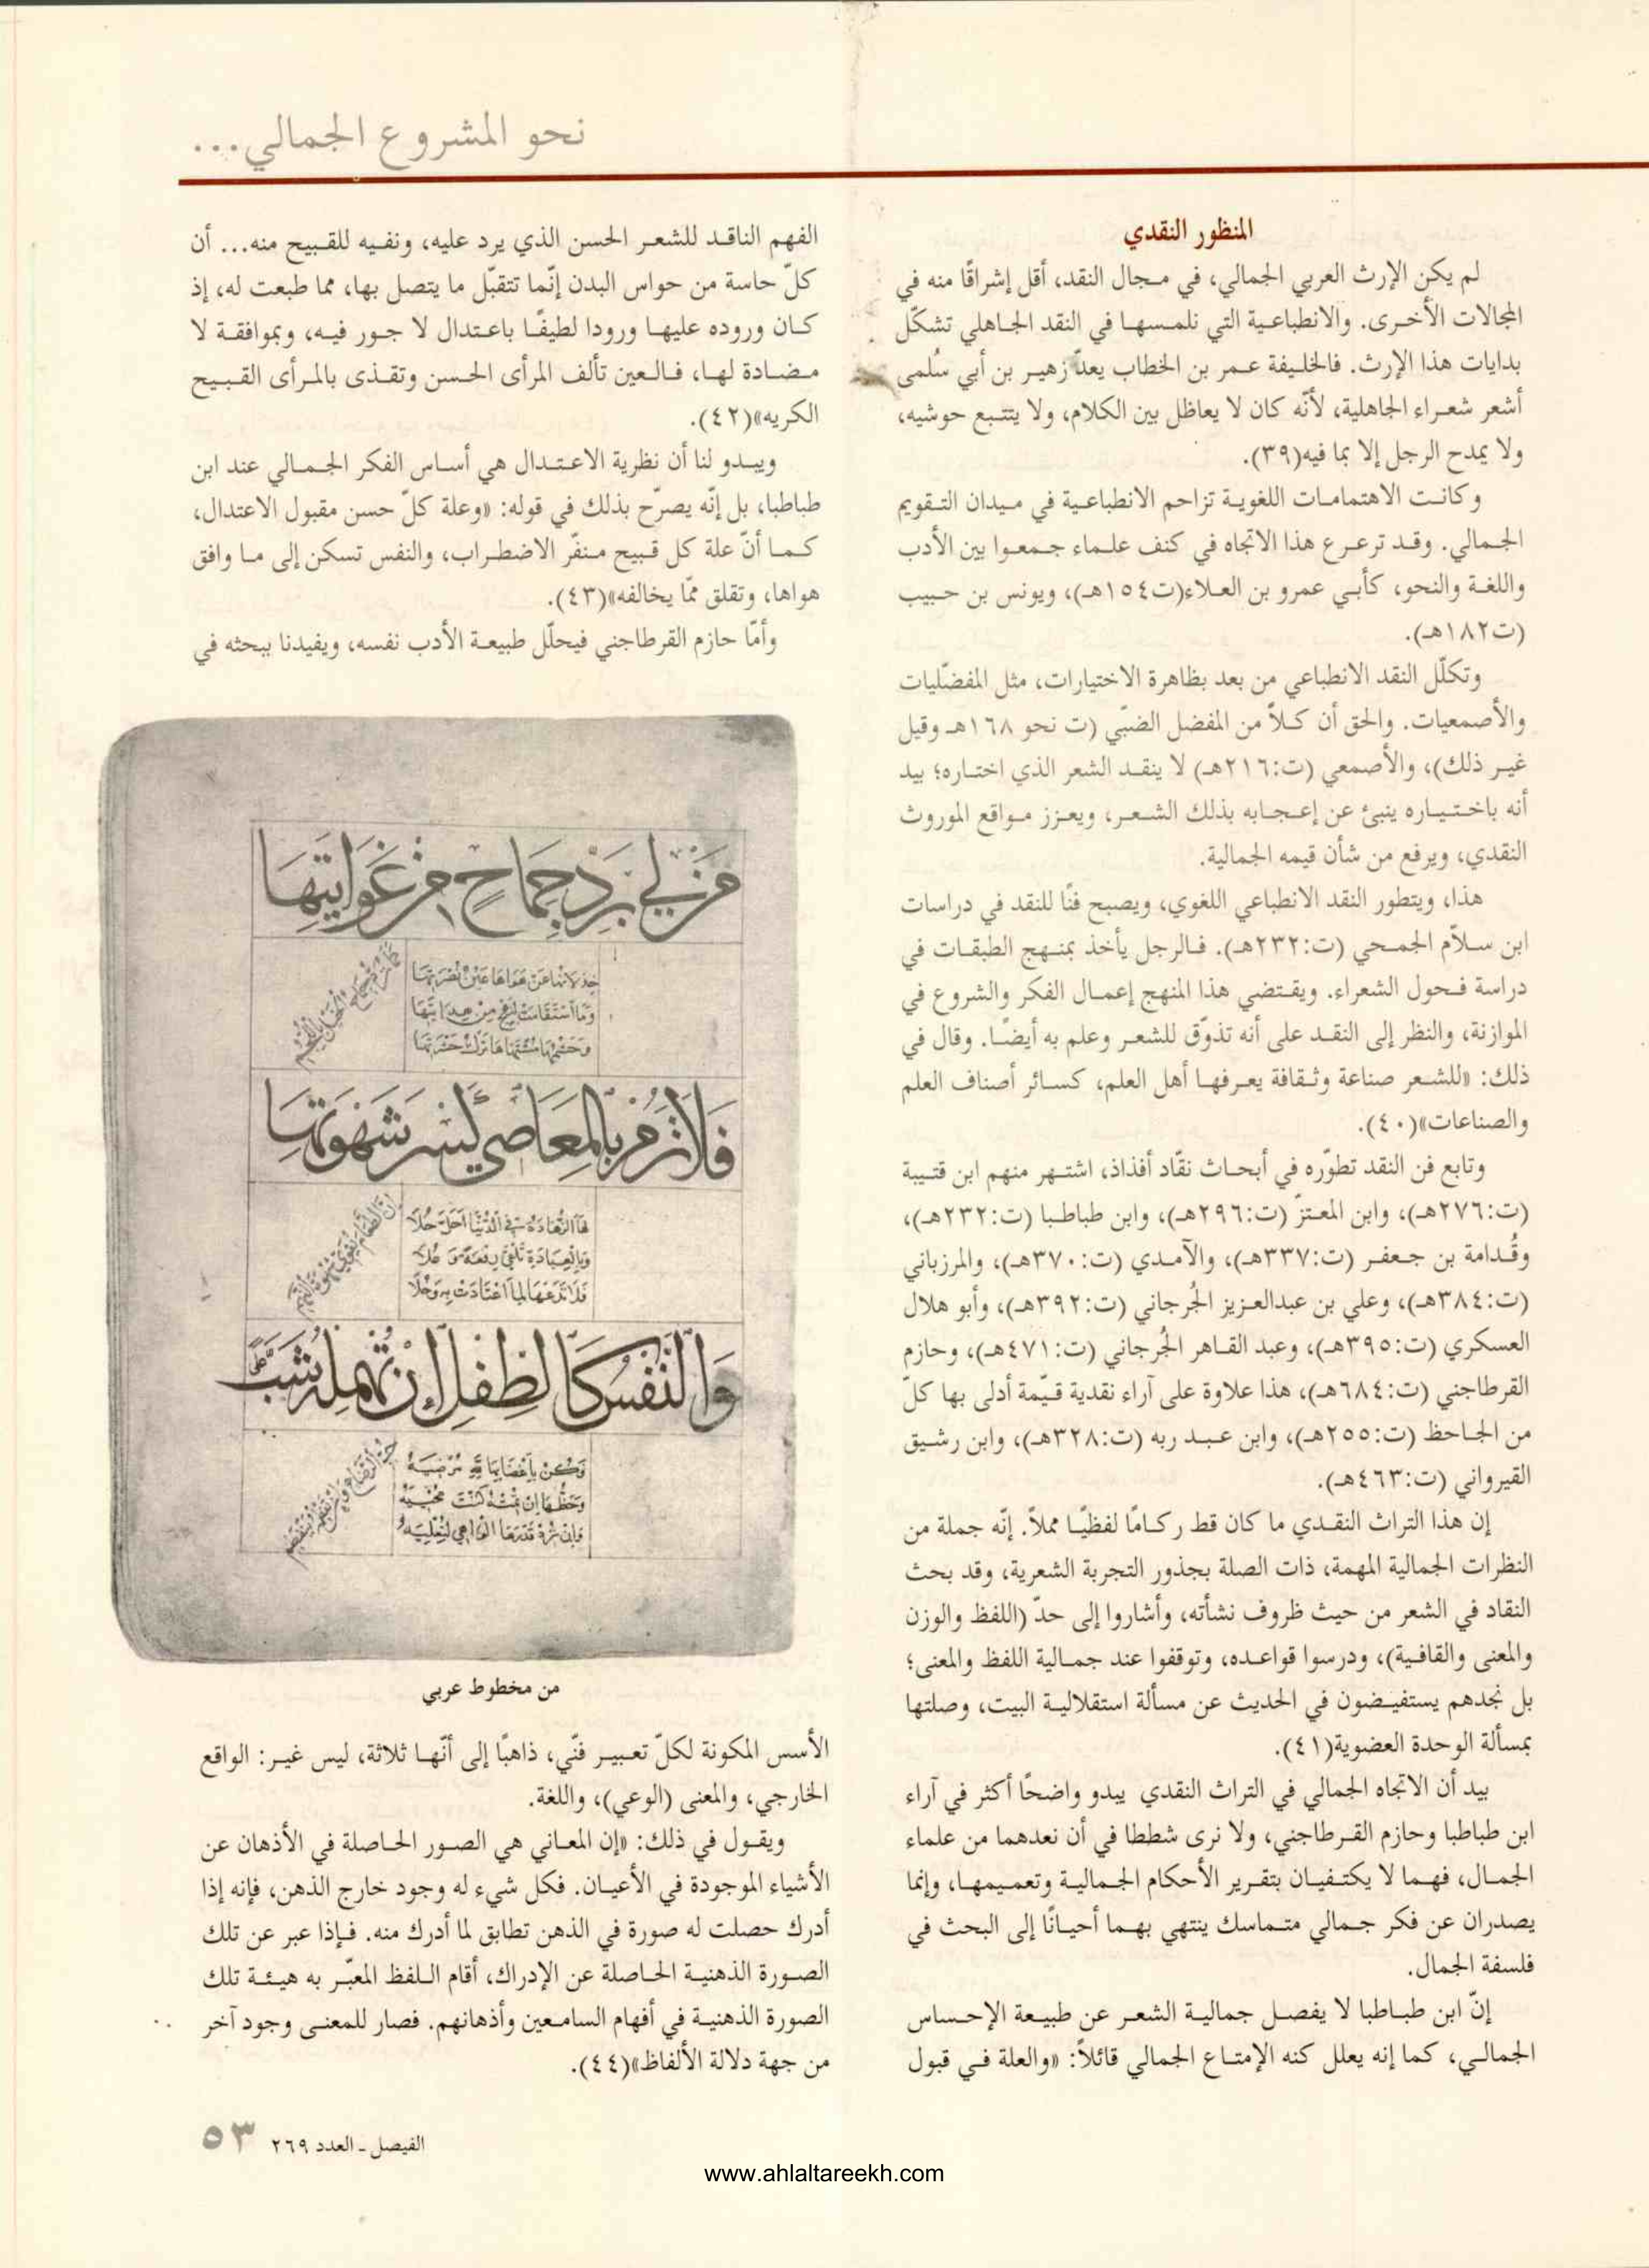 نحو المشروع الجمالي...
المنظور النقدي
لم يكن الإرث العربي الجمالي، في مجال النقد، أقل إشراقًا منه في
المجالات الأخرى. والانطباعية التي نلمسها في النقد الجاهلي تشكّل
بدايات هذا الإرث. فالخليفة عمر بن الخطاب يعدّ زهير بن أبي سُلمى
أشعر شعراء الجاهلية، لأنّه كان لا يعاظل بين الكلام، ولا يتتبع حوشيه،
ولا يمدح الرجل إلا بما فيه(٣٩).
وكانت الاهتمامات اللغوية تزاحم الانطباعية في ميدان التقويم
الجمالي. وقد ترعرع هذا الاتجاه في كنف علماء جمعوا بين الأدب
واللغة والنحو، كأبي عمرو بن العلاء(ت١٥٤هـ)، ويونس بن حبيب
(ت١٨٢هـ).
وتكلّل النقد الانطباعي من بعد بظاهرة الاختيارات، مثل المفضّليات
والأصمعيات. والحق أن كلاًّ من المفضل الضبّي (ت نحو ١٦٨هـ وقيل
غير ذلك)، والأصمعي (ت:٢١٦هـ) لا ينقد الشعر الذي اختاره؛ بيد
أنه باختياره ينبئ عن إعجابه بذلك الشعر، ويعزز مواقع الموروث
النقدي، ويرفع من شأن قيمه الجمالية.
هذا، ويتطور النقد الانطباعي اللغوي، ويصبح فنًا للنقد في دراسات
ابن سلاّم الجمحي (ت:٢٣٢هـ). فالرجل يأخذ بمنهج الطبقات في
دراسة فحول الشعراء. ويقتضي هذا المنهج إعمال الفكر والشروع في
الموازنة، والنظر إلى النقد على أنه تذوّق للشعر وعلم به أيضًا. وقال في
ذلك: «للشعر صناعة وثقافة يعرفها أهل العلم، كسائر أصناف العلم
والصناعات»(٤٠).
وتابع فن النقد تطوّره في أبحاث نقّاد أفذاذ، اشتهر منهم ابن قتيبة
(ت:٢٧٦هـ)، وابن المعتزّ (ت:٢٩٦هـ)، وابن طباطبا (ت:٢٣٢هـ)،
وقُدامة بن جعفر (ت:٣٣٧هـ)، والآمدي (ت:٣٧٠هـ)، والمرزباني
(ت:٣٨٤هـ)، وعلي بن عبدالعزيز الجُرجاني (ت:٣٩٢هـ)، وأبو هلال
العسكري (ت:٣٩٥هـ)، وعبد القاهر الجُرجاني (ت:٤٧١هـ)، وحازم
القرطاجني (ت:٦٨٤هـ)، هذا علاوة على آراء نقدية قيّمة أدلى بها كلّ
من الجاحظ (ت:٢٥٥هـ)، وابن عبد ربه (ت:٣٢٨هـ)، وابن رشيق
القيرواني (ت:٤٦٣هـ).
إن هذا التراث النقدي ما كان قط ركامًا لفظيًا مملاً. إنّه جملة من
النظرات الجمالية المهمة، ذات الصلة بجذور التجربة الشعرية، وقد بحث
النقاد في الشعر من حيث ظروف نشأته، وأشاروا إلى حدّ (اللفظ والوزن
والمعنى والقافية)، ودرسوا قواعده، وتوقفوا عند جمالية اللفظ والمعنى؛
بل نجدهم يستفيضون في الحديث عن مسألة استقلالية البيت، وصلتها
بمسألة الوحدة العضوية(٤١).
بيد أن الاتجاه الجمالي في التراث النقدي يبدو واضحًا أكثر في آراء
ابن طباطبا وحازم القرطاجني، ولا نرى شططا في أن نعدهما من علماء
الجمال، فهما لا يكتفيان بتقرير الأحكام الجمالية وتعميمها، وإنما
يصدران عن فكر جمالي متماسك ينتهي بهما أحيانًا إلى البحث في
فلسفة الجمال.
إنّ ابن طباطبا لا يفصل جمالية الشعر عن طبيعة الإحساس
الجمالي، كما إنه يعلل كنه الإمتاع الجمالي قائلاً: «والعلة في قبول
الفهم الناقد للشعر الحسن الذي يرد عليه، ونفيه للقبيح منه... أن
كلّ حاسة من حواس البدن إنّما تتقبّل ما يتصل بها، مما طبعت له، إذ
كان وروده عليها ورودا لطيفًا باعتدال لا جور فيه، وبموافقة لا
مضادة لها، فالعين تألف المرأى الحسن وتقذى بالمرأى القبيح
الكريه»(٤٢).
ويبدو لنا أن نظرية الاعتدال هي أساس الفكر الجمالي عند ابن
طباطبا، بل إنّه يصرّح بذلك في قوله: «وعلة كلّ حسن مقبول الاعتدال،
كما أنّ علة كل قبيح منفّر الاضطراب، والنفس تسكن إلى ما وافق
هواها، وتقلق ممّا يخالفه»(٤٣).
وأمّا حازم القرطاجني فيحلّل طبيعة الأدب نفسه، ويفيدنا ببحثه في
من لي برد جماح من غوايتها
فلا ترم بالمعاصي كسر شهوتها
والنفس كالطفل إن تهمله شب على
من مخطوط عربي
الأسس المكونة لكلّ تعبير فنّي، ذاهبًا إلى أنّها ثلاثة، ليس غير: الواقع
الخارجي، والمعنى (الوعي)، واللغة.
ويقول في ذلك: «إن المعاني هي الصور الحاصلة في الأذهان عن
الأشياء الموجودة في الأعيان. فكل شيء له وجود خارج الذهن، فإنه إذا
أدرك حصلت له صورة في الذهن تطابق لما أدرك منه. فإذا عبر عن تلك
الصورة الذهنية الحاصلة عن الإدراك، أقام اللفظ المعبّر به هيئة تلك
الصورة الذهنية في أفهام السامعين وأذهانهم. فصار للمعنى وجود آخر
من جهة دلالة الألفاظ»(٤٤).
الفيصل ـ العدد ٢٦٩ ٥٣
www.ahlaltareekh.com